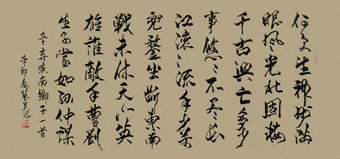 何處望神州滿
眼風光北固樓
千古興亡多少
事悠悠不盡長
江滾滾流年少萬
兜鍪坐斷東南
戰未休天下英
雄誰敵手曹劉
生子當如孫仲謀
辛棄疾南鄉子一首
辛卯春